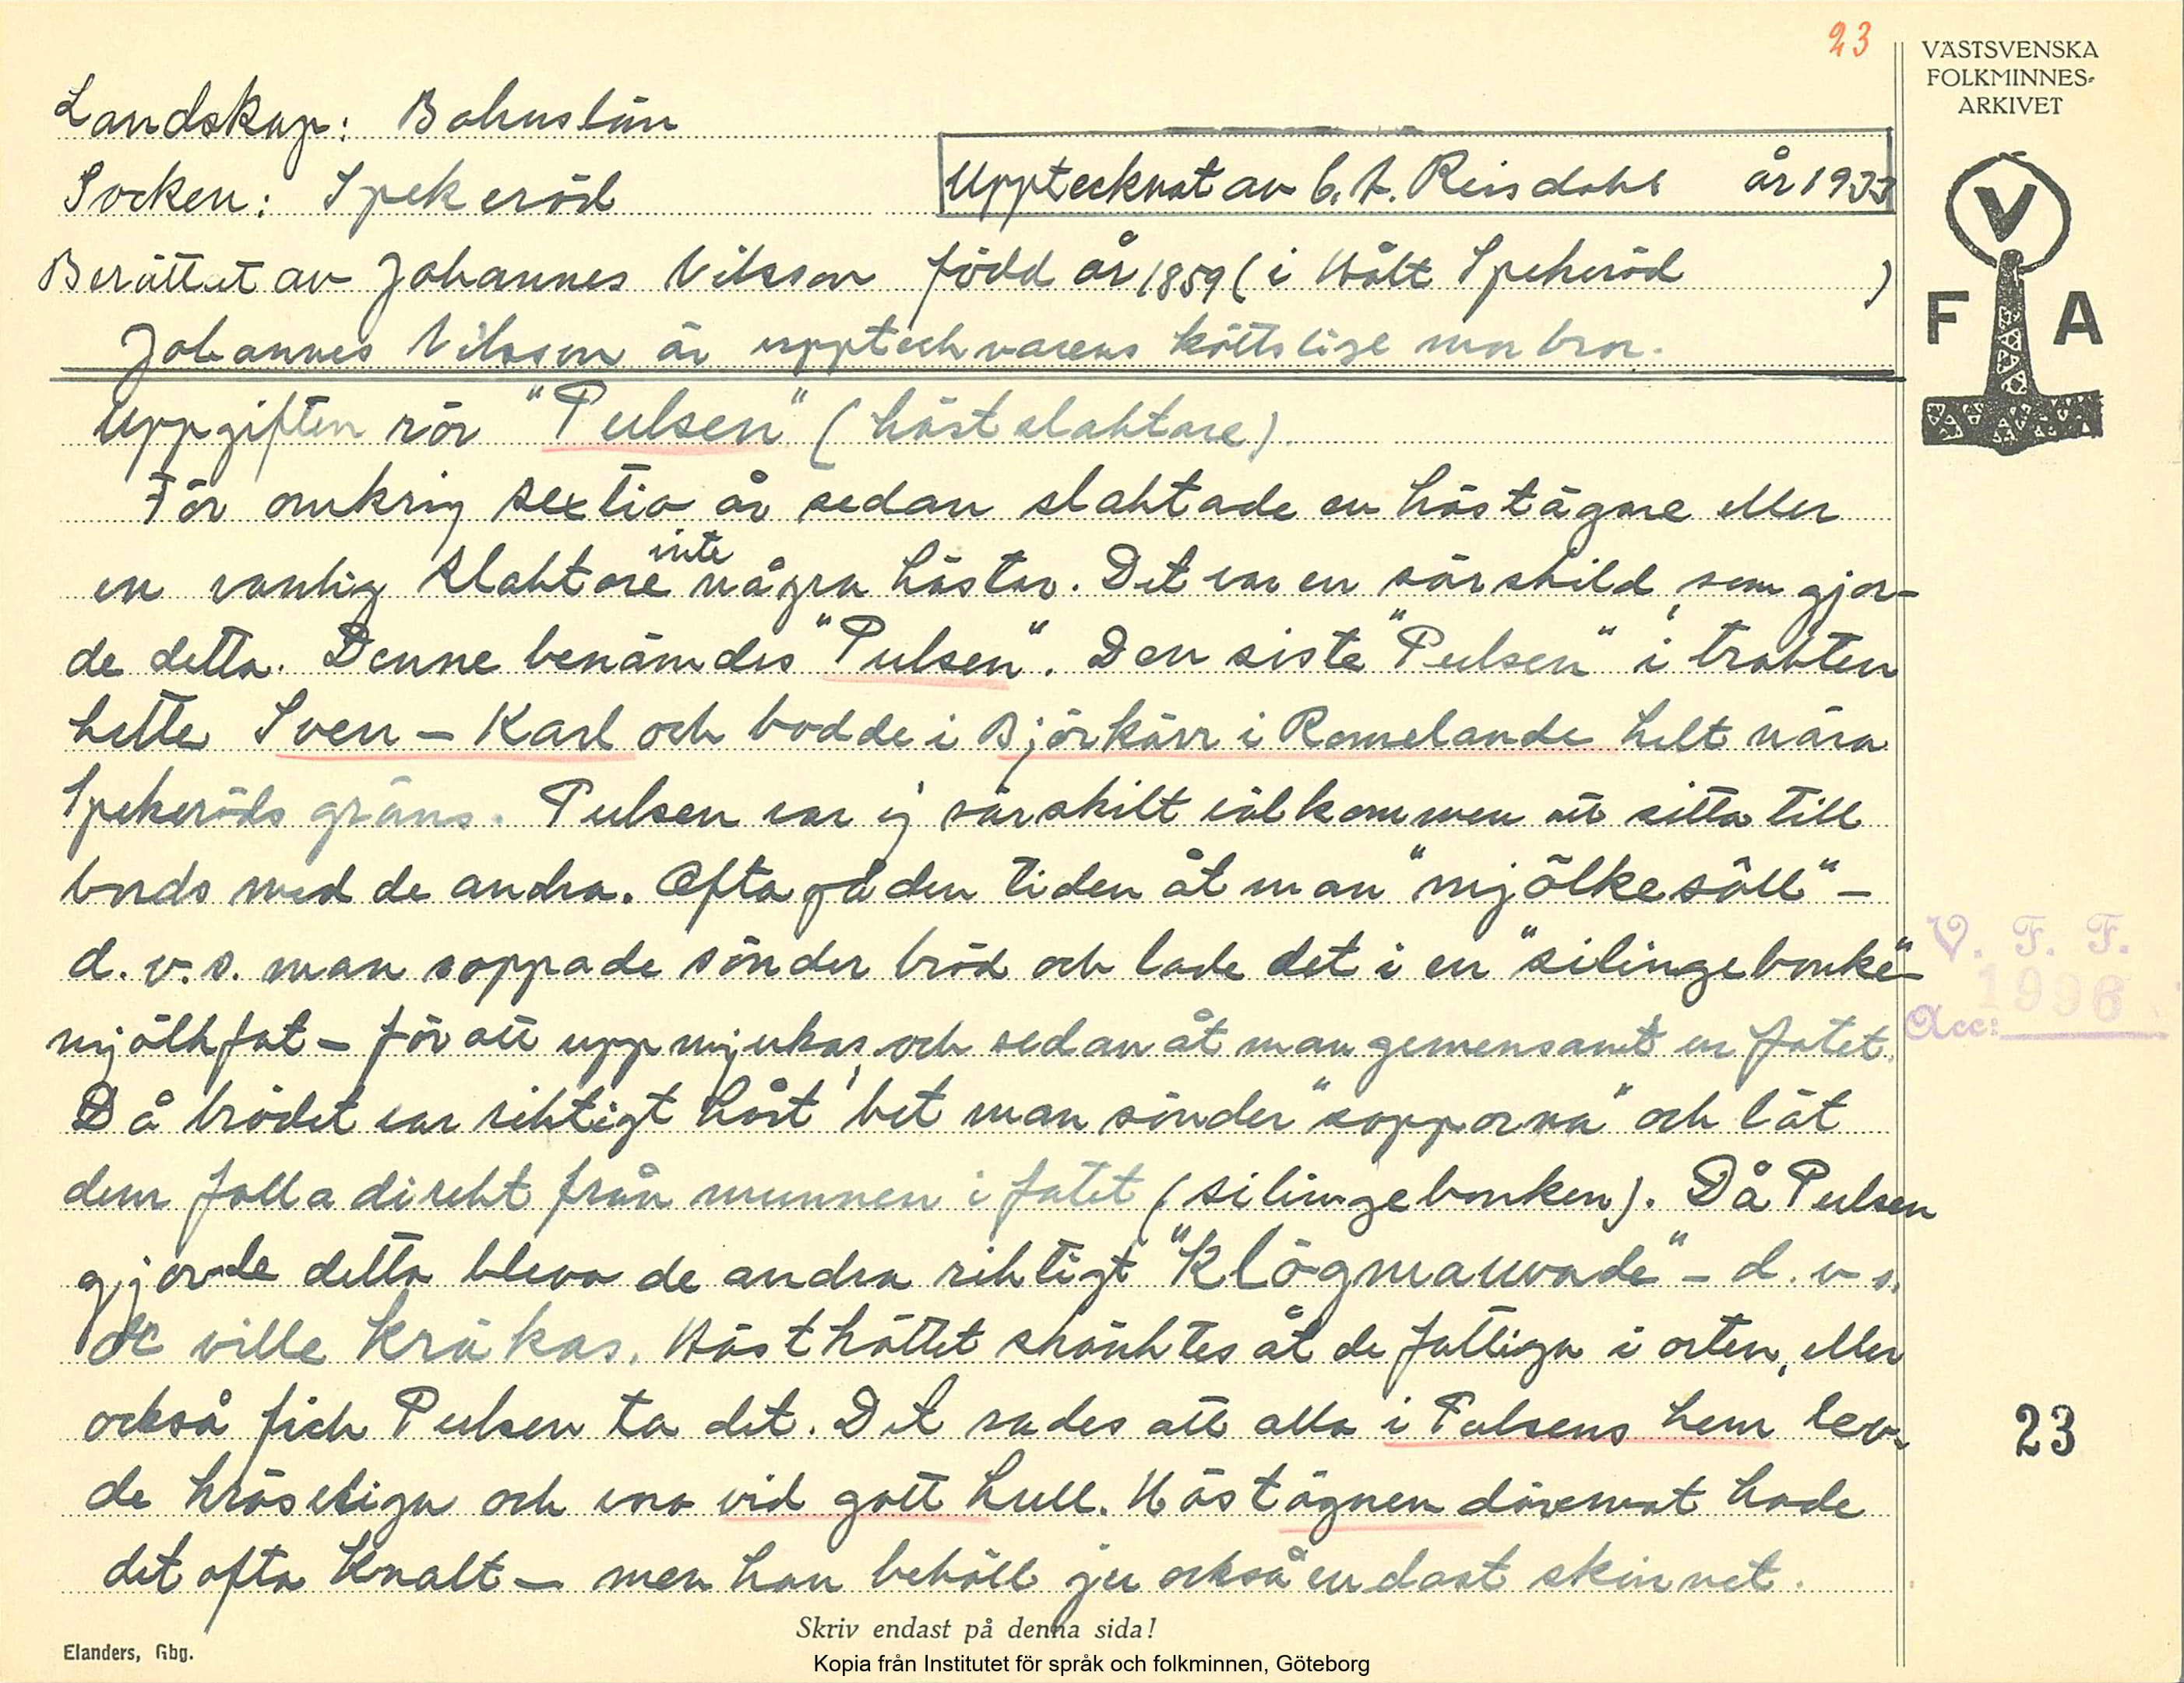 23
VÄSTSVENSKA
FOLKMINNES-
ARKIVET
Landskap: Bohuslän
Socken: Spekeröd
Upptecknat av C. A. Reisdahl år 1933
Berättet av Johannes Nilsson född år 1859 (i Hält Spekeröd )
Johannes Nilsson är upptecknarens köttslige morbror.
V
F A
Uppgiften rör "Pulsen" (hästslaktare).
För omkring sextio år sedan slaktade en hästägare eller
en vanlig slaktare inte några hästar. Det var en särskild, som gjor-
de detta. Denne benämdes "Pulsen". Den siste "Pulsen" i trakten
hette Sven - Karl och bodde i Björkärr i Romelanda helt nära
Spekeröds gräns. Pulsen var ej särskilt välkommen att sitta till
bords med de andra. Ofta på den tiden åt man "mjölkesöll" -
d. v. s. man soppade sönder bröd och lade det i en "silingebonke"-
mjölkfat - för att uppmjukas, och sedan åt man gemensamt ur fatet.
Då brödet var riktigt hårt bet man sönder "sopporna" och lät
dem falla direkt från munnen i fatet (silingebonken). Då Pulsen
gjorde detta blevo de andra riktigt "klögmauvade" - d. v s.
de ville kräkas. Hästköttet skänktes åt de fattiga i orten, eller
också fick Pulsen ta det. Det sades att alla i Pulsens hem lev-
de kräseliga och voro vid gott hull. Hästägaren däremot hade
det ofta knalt - men han behöll ju också endast skinnet.
V. F. F.
1996
Acc:
23
Skriv endast på denna sida!
Elanders, Gbg.
Kopia från Institutet för språk och folkminnen, Göteborg